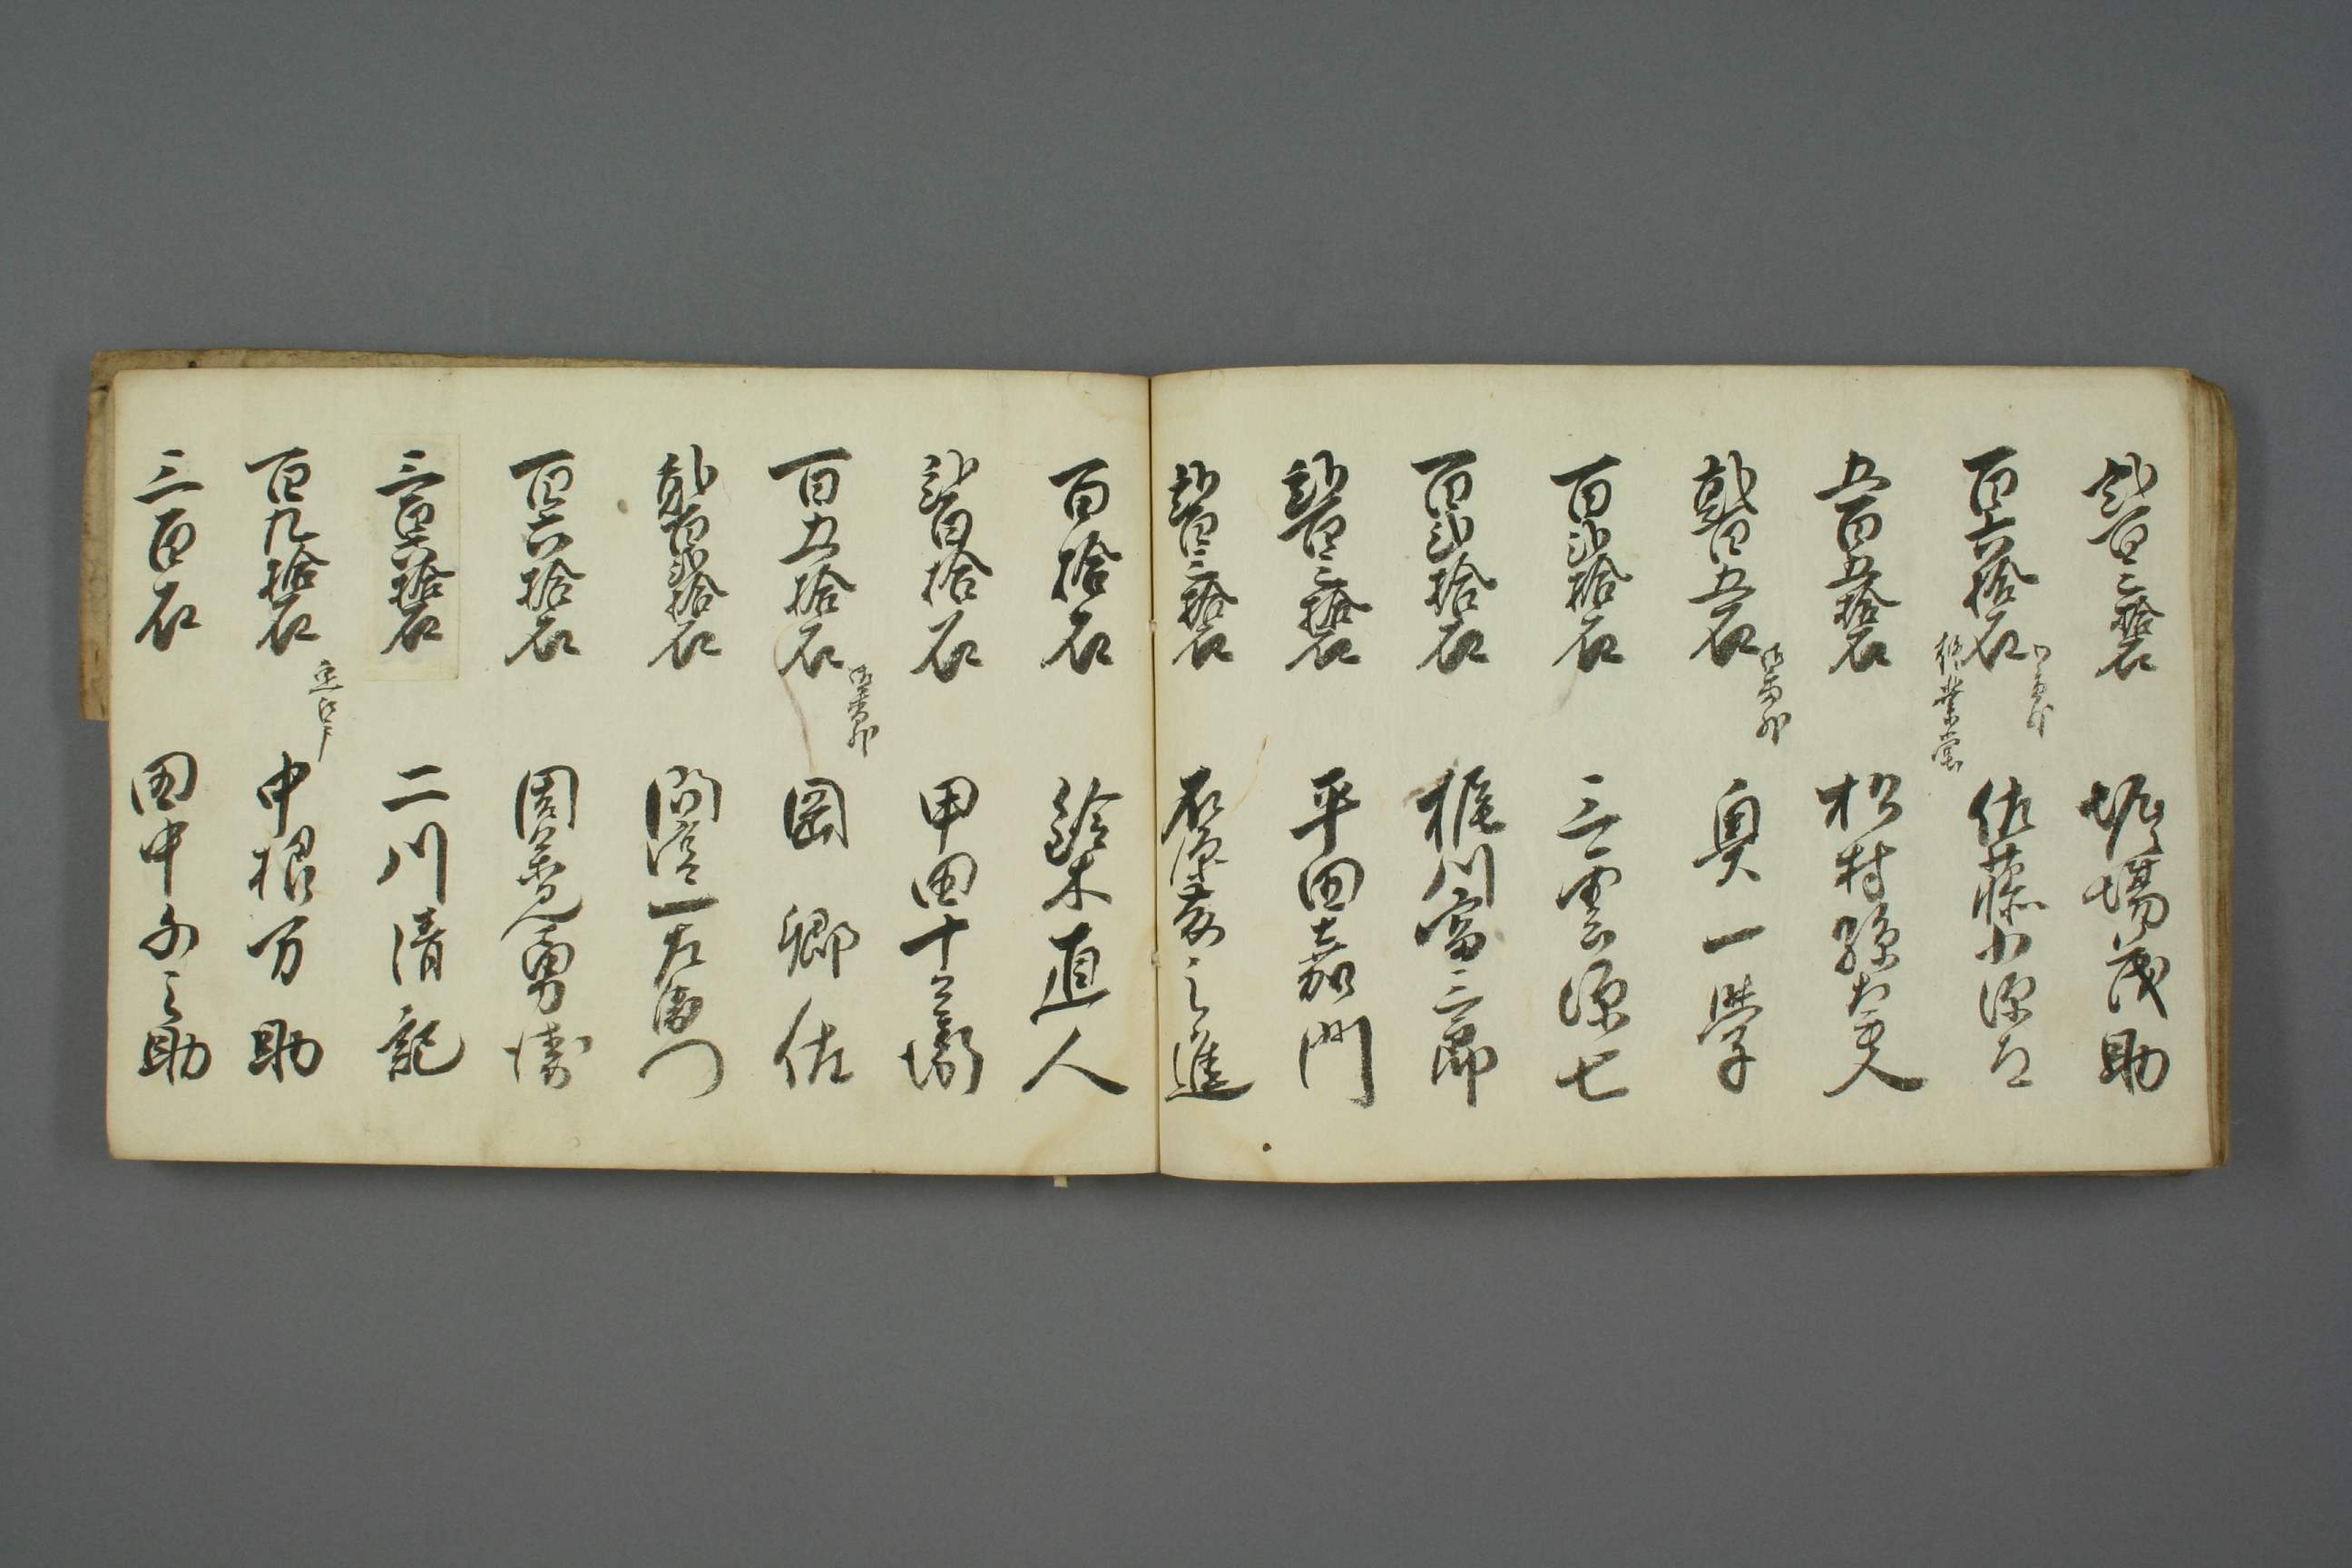 弐百三拾石 堀場茂助
百六拾石 佐藤小源太
五百五拾石 松村孫太夫
弐百五石 奥一学
百弐拾石 三雲源七
百弐拾石 梶川富三郎
弐百三拾石 平田嘉門
弐百三拾石 石原幸之進
百拾石 鈴木直人
弐百拾石 甲田十
百五拾石 岡郷佐
弐百弐拾石 一左衛門
百六拾石 勇
三百六拾石 二川清記
百九拾石 中根万助
三百石 田中之助